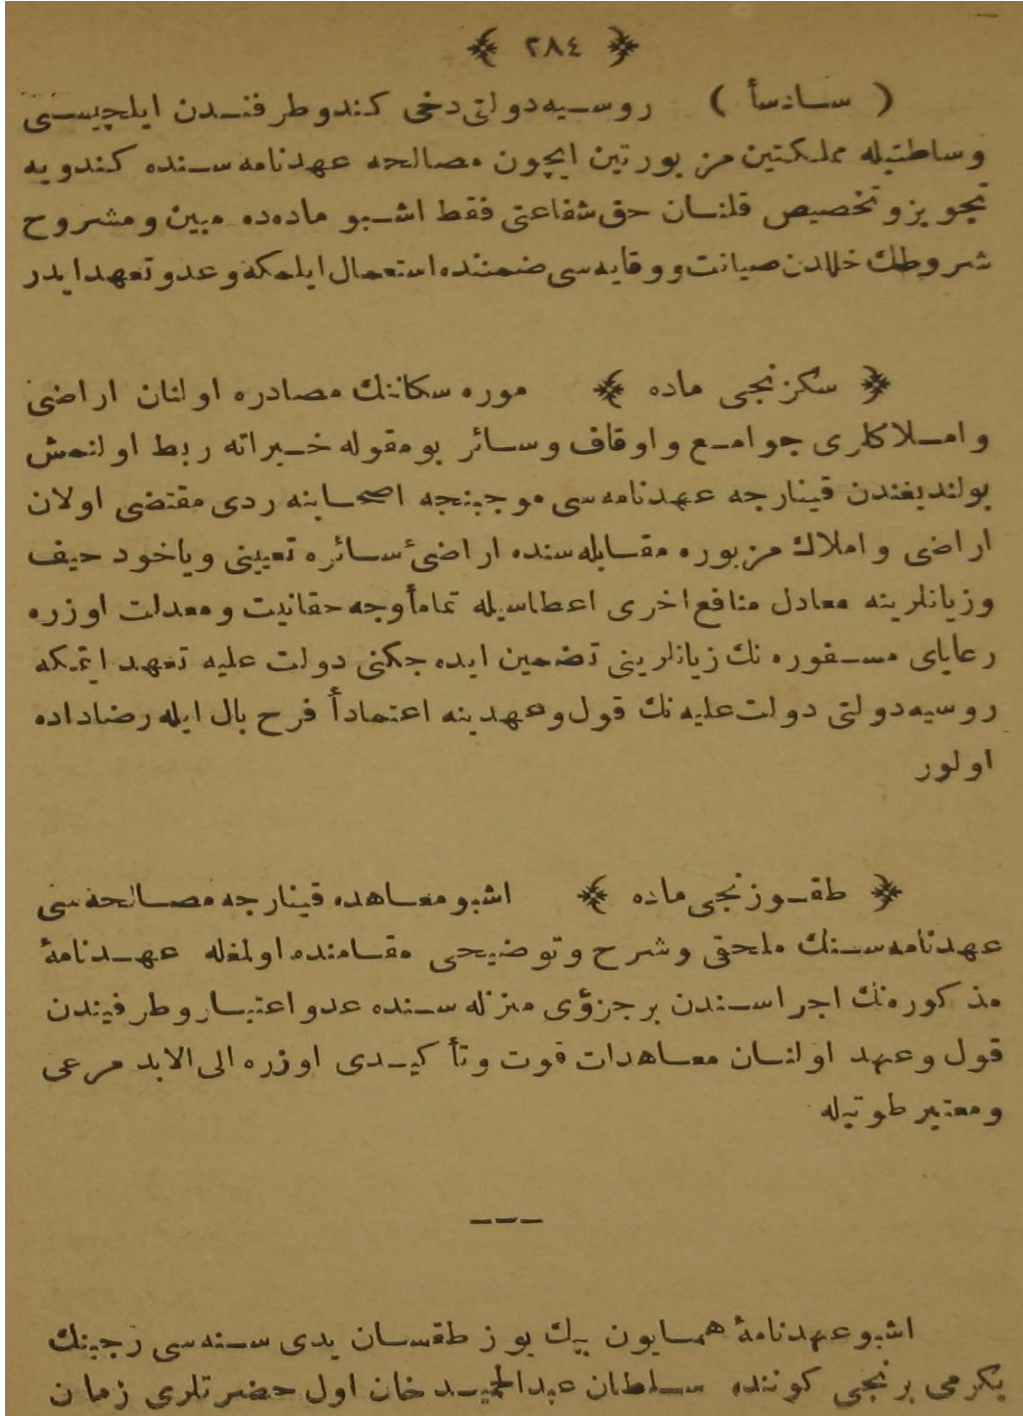 ﴿ ٢٨٤ ﴾
( سادساً ) روسیه دولتی دخی کندو طرفندن ایلچیسی
وساطتیله مملکتین مزبورتین ایچون مصالحه عهدنامه سنده کندویه
تجویز و تخصیص قلنان حق شفاعتی فقط اشبو ماده ده مبین و مشروح
شروطك خللدن صیانت و وقایه سی ضمننده استعمال ایلمکه وعد و تعهد ایدر
﴿ سکزنجی ماده ﴾ موره سکاننك مصادره اولنان اراضی
و املاکلری جوامع و اوقاف و سائر بومقوله خیراته ربط اولنمش
بولندیغندن قینارجه عهدنامه سی موجبنجه اصحابنه ردی مقتضی اولان
اراضی و املاك مزبوره مقابله سنده اراضیٔ سائره تعیینی ویاخود حیف
و زیانلرینه معادل منافع اخری اعطاسیله تماماً وجه حقانیت و معدلت اوزره
رعایای مسفوره نك زیانلرینی تضمین ایده جکنی دولت علیه تعهد ایتمکه
روسیه دولتی دولت علیه نك قول و عهدینه اعتماداً فرح بال ایله رضاداده
اولور
﴿ طقوزنجی ماده ﴾ اشبو معاهده قینارجه مصالحه سی
عهدنامه سنك ملحقی و شرح و توضیحی مقامنده اولمغله عهدنامهٔ
مذکوره نك اجراسندن بر جزؤی منزله سنده عد و اعتبار و طرفیندن
قول و عهد اولنان معاهدات قوت و تأکیدی اوزره الی الابد مرعی
و معتبر طوتیله
---
اشبو عهدنامهٔ همایون بیك یوز طقسان یدی سنه سی رجبنك
یکرمی برنجی کوننده سلطان عبدالحمید خان اول حضرتلری زمان